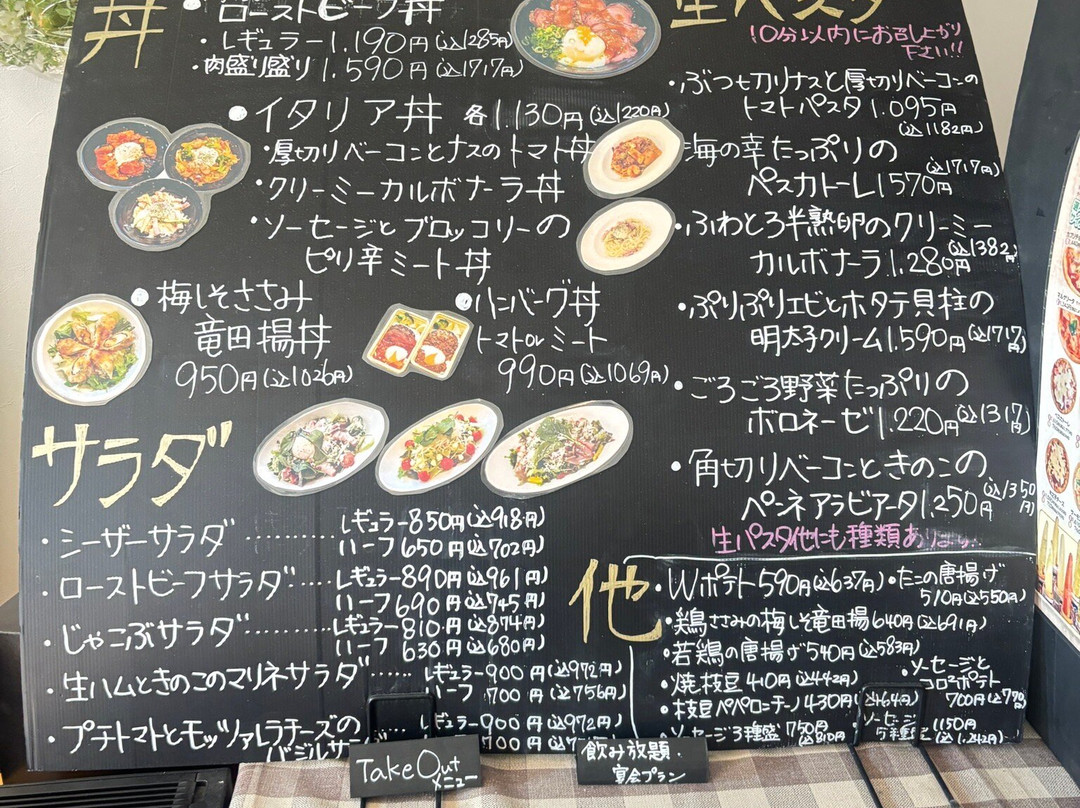 丼
・ローストビーフ丼
・レギュラー1.190円(込1285円)
・肉盛り盛り 1.590円(込1717円)
・イタリア丼 各1.130円(込1220円)
・厚切りベーコンとナスのトマト丼
・クリーミーカルボナーラ丼
・ソーセージとブロッコリーの
ピリ辛ミート丼
・梅しそささみ
竜田揚丼
950円(込1026円)
・ハンバーグ丼
トマトorミート
990円(込1069円)
サラダ
・シーザーサラダ………… レギュラー850円(込918円)
ハーフ 650円(込702円)
・ローストビーフサラダ…… レギュラー890円(込961円)
ハーフ 690円(込745円)
・じゃこぶサラダ………… レギュラー810円(込874円)
ハーフ 630円(込680円)
・生ハムときのこのマリネサラダ…… レギュラー900円(込972円)
ハーフ 700円(込756円)
・プチトマトとモッツァレラチーズの レギュラー900円(込972円)
生パスタ
10分以内にお召し上がり
下さい!!
・ぶつ切りナスと厚切りベーコンの
トマトパスタ 1.095円
(込1182円)
・海の幸たっぷりの
ペスカトーレ1570円
(込1717円)
・ふわとろ半熟卵のクリーミー
カルボナーラ1.280円
(込1382
・ぷりぷりエビとホタテ貝柱の
明太子クリーム1.590円(込1717円)
・ごろごろ野菜たっぷりの
ボロネーゼ1.220円(込1317円)
・角切りベーコンときのこの
ペンネアラビアータ1.250円
(込1350円)
生パスタ他にも種類あります
他
・Wポテト590円(込637円)
・たこの唐揚げ
510円(込550円)
・鶏ささみの梅しそ竜田揚 640円(込691円)
・若鶏の唐揚げ540円(込583円)
・焼枝豆 410円(込442円)
・ソーセージと
コロコロポテト
700円
・枝豆ペペロンチーノ430円(込464円)
・ソーセージ3種盛 750円
(込810円)
ソーセージ
5種盛 1150円
(込1.242円)
TakeOut
メニュー
飲み放題・
宴会プラン